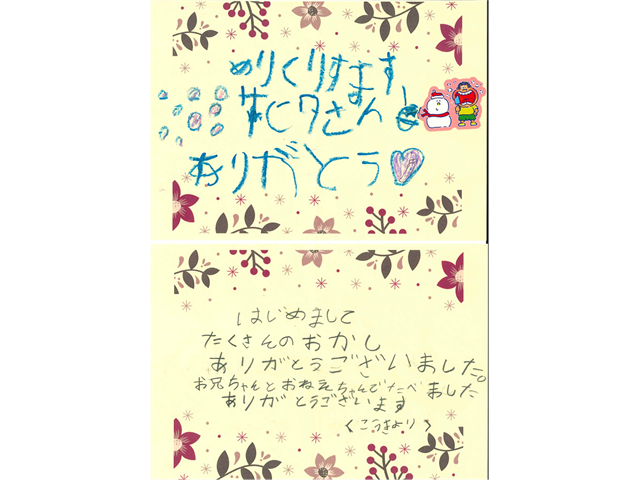 めりくりすます
さん
ありがとう
はじめまして
たくさんのおかし
ありがとうございました。
お兄ちゃんとおねえちゃんでたべました
ありがとうございます
くこうきより>